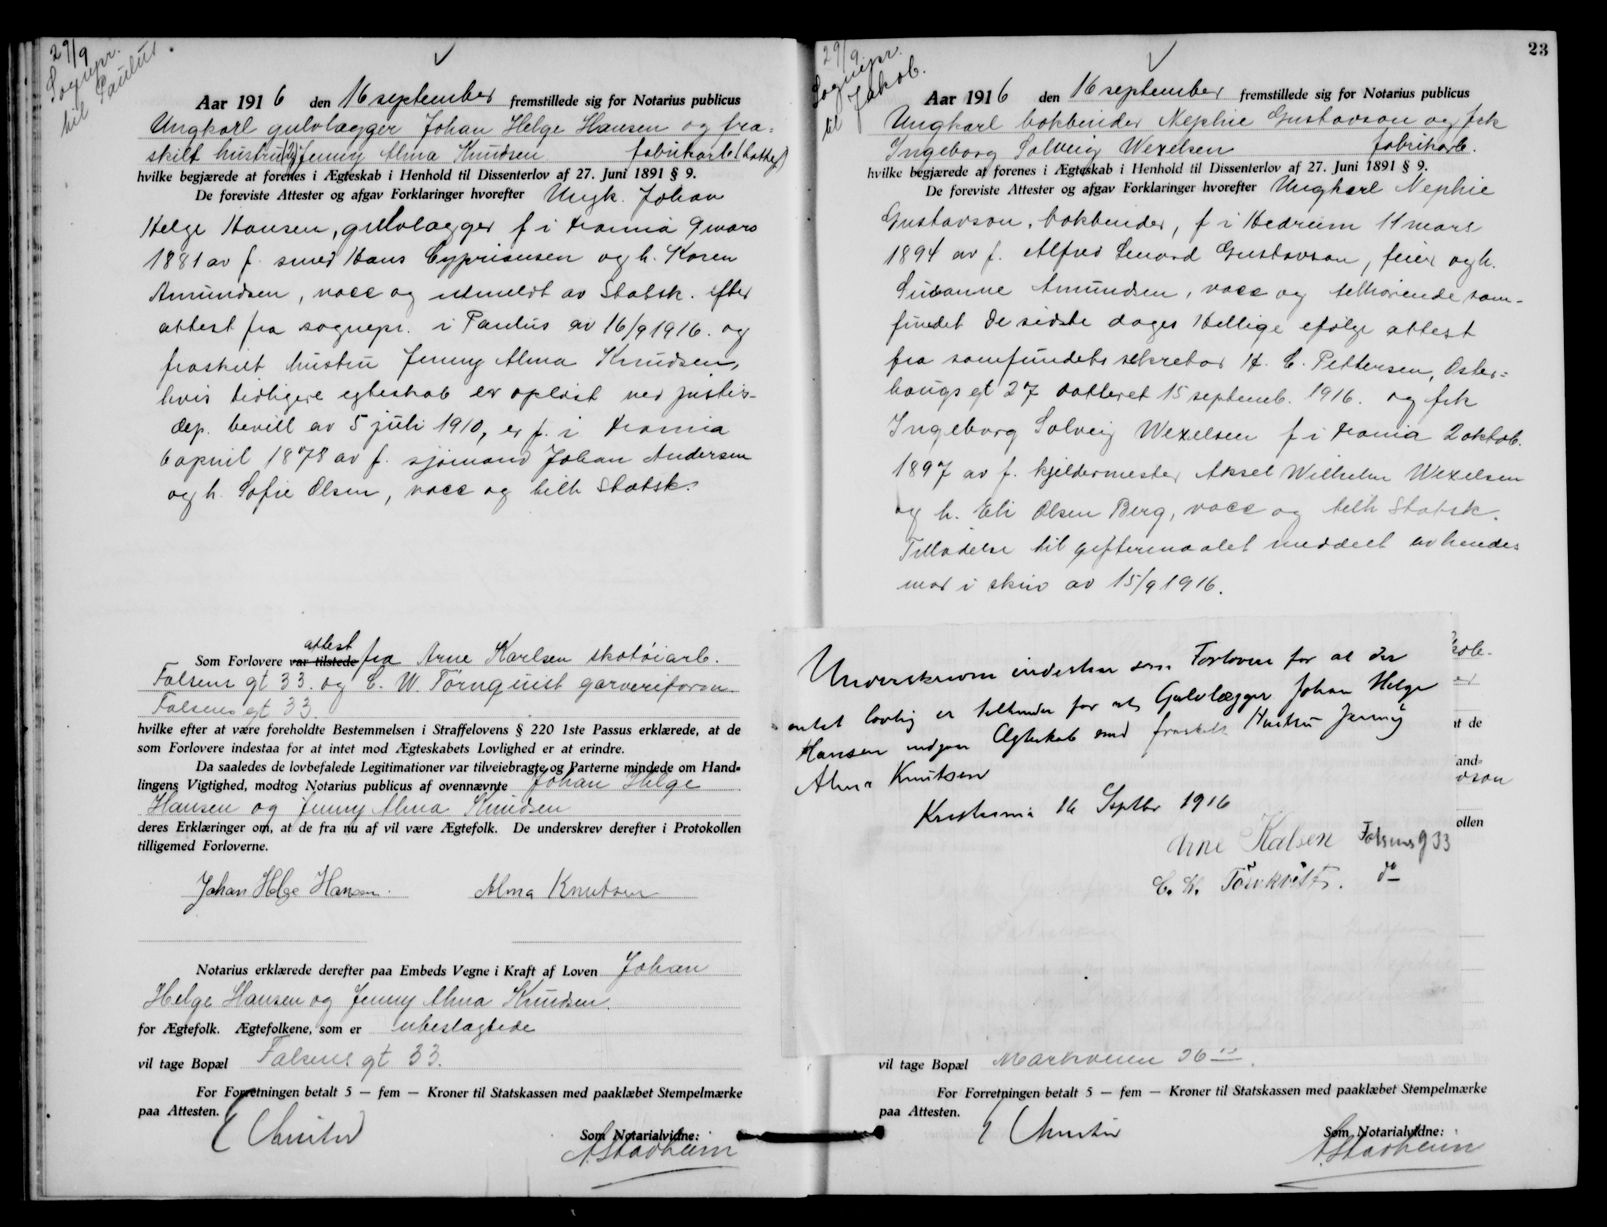 29/9
Sognepr.
til Paulus.
Aar 1916 den 16 september fremstillede sig for Notarius publicus
Ungkarl gulvlægger Johan Helge Hansen og fra=
skilt hustru (2) Jenny Alma Knudsen fabrikarb.
hvilke begjærede at forenes i Ægteskab i Henhold til Dissenterlov af 27. Juni 1891 § 9.
De foreviste Attester og afgav Forklaringer hvorefter Ungk. Johan
Helge Hansen, gulvlægger f i Krania 9 mars
1881 av f. smed Hans Cyprianusen og h. Karen
Amundsen, vacc og utmeldt av Statsk. efter
attest fra sognepr. i Paulus av 16/9 1916. og
fraskilt hustru Jenny Alma Knudsen,
hvis tidligere egteskab er opløst ved justis-
dep. bevill av 5 juli 1910, er f. i Krania
6 april 1878 av f. sjømand Johan Andersen
og h. Sofie Olsen, vacc og tilh Statsk.
Som Forlovere var tilstede attest fra Arne Karlsen skotøiarb.
Falsens gt 33. og C. W. Törnquist garveriform.
Falsens gt 33
hvilke efter at være foreholdte Bestemmelsen i Straffelovens § 220 1ste Passus erklærede, at de
som Forlovere indestaa for at intet mod Ægteskabets Lovlighed er at erindre.
Da saaledes de lovbefalede Legitimationer var tilveiebragte og Parterne mindede om Hand-
lingens Vigtighed, modtog Notarius publicus af ovennævnte Johan Helge
Hansen og Jenny Alma Knudsen
deres Erklæringer om, at de fra nu af vil være Ægtefolk. De underskrev derefter i Protokollen
tilligemed Forloverne.
Johan Helge Hansen. Alma Knutsen
Notarius erklærede derefter paa Embeds Vegne i Kraft af Loven Johan
Helge Hansen og Jenny Alma Knudsen.
for Ægtefolk. Ægtefolkene, som er ubeslægtede
vil tage Bopæl Falsens gt 33.
For Forretningen betalt 5 — fem — Kroner til Statskassen med paaklæbet Stempelmærke
paa Attesten.
Som Notarialvidne:
A. Stadheim
23
29/9
Sognepr.
til Jakob.
Aar 1916 den 16 september fremstillede sig for Notarius publicus
Ungkarl bokbinder Nephie Gustavson og frk
Ingeborg Solveig Wexelsen fabrikarb.
hvilke begjærede at forenes i Ægteskab i Henhold til Dissenterlov af 27. Juni 1891 § 9.
De foreviste Attester og afgav Forklaringer hvorefter Ungkarl Nephie
Gustavson, bokbinder, f i Hedrum 11 mars
1894 av f. Alfred Lenard Gustavson, feier og h.
Susanne Amundsen, vacc og tilhørende sam-
fundet de sidste dages Hellige efølge attest
fra samfundets sekretær H. C. Pettersen, Oster=
haugs gt 27 datteret 15 septemb. 1916. og frk
Ingeborg Solveig Wexelsen f i Krania 2 oktob.
1897 av f. kjeldermester Aksel Wilhelm Wexelsen
og h. Eli Olsen Berg, vacc og tilh Statsk.
Tilladelse til giftermaalet meddelt av hendes
mor i skriv av 15/9 1916.
Underskrevne indestaar som Forlovere for at der
intet lovlig er tilhinder for at Gulvlægger Johan Helge
Hansen indgaar Ægteskab med fraskilt Hustru Jenny
Alma Knutsen
Kristiania 16 Septbr 1916
Arne Kalsen Falsensg 33
C. W. Törnkvist. do
at de
and-
vson
ollen
vil tage Bopæl Markveien 36
For Forretningen betalt 5 — fem — Kroner til Statskassen med paaklæbet Stempelmærke
paa Attesten.
Som Notarialvidne:
A. Stadheim